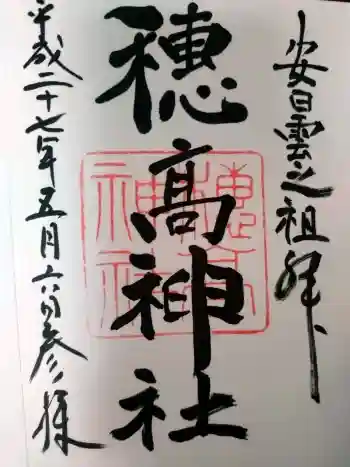 安曇之祖拝
穂髙神社
穂高神社
平成二十七年五月六日参拝